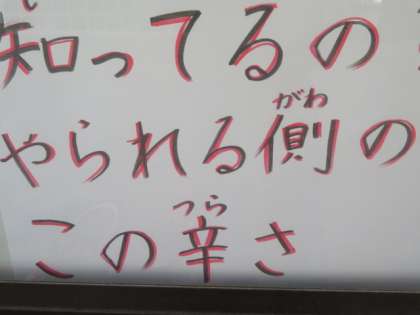 知ってるの
がわ
やられる側の
つら
この辛さ